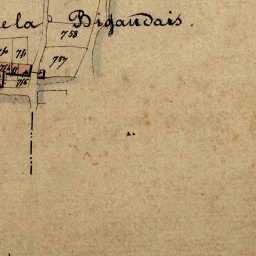 e la Bigaudais.
758
76
757